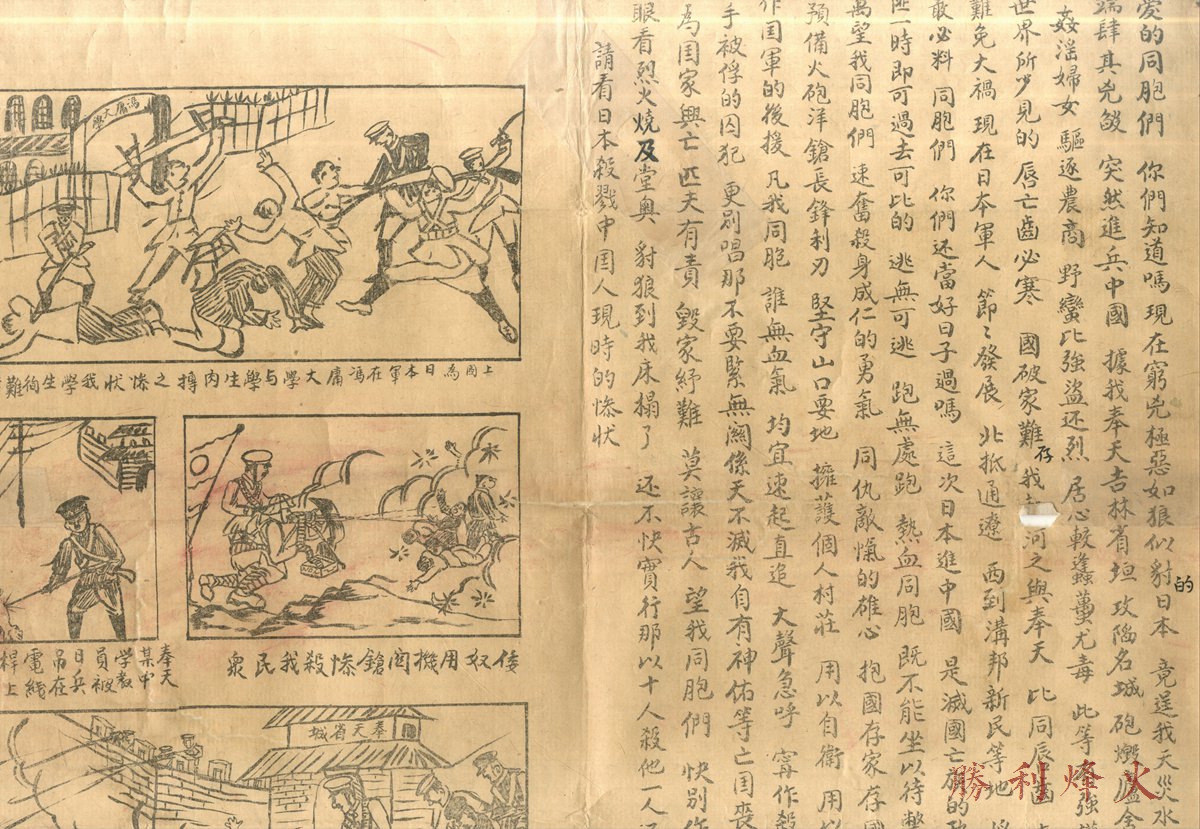 愛的同胞們 你們知道嗎現在窮兇極惡如狼似豺的日本 竟逞我天災水
端肆其兇燄 突然進兵中國 據我奉天吉林省垣 攻陷名城 砲燬
姦淫婦女 驅逐農商 野蠻比強盜还烈 居心較蠭蠆尤毒 此等強
世界所少見的 唇亡齒必寒 國破家難存 我 河之與奉天 比同
難免大禍現在日本軍人 節〻發展 北抵通遼 西到溝邦新民等地
敢必料 同胞們 你們还當好日子過嗎 這次日本進中國 是滅國亡族的
匪一時即可過去可比的 逃無可逃 跑無處跑 熱血同胞 既不能坐以待斃
萬望我同胞們 速奮殺身成仁的勇氣 同仇敵愾的雄心 抱國存家存國
預備火砲洋鎗長鋒利刃 堅守山口要地 擁護個人村莊 用以自衛 用以
作囯軍的後援 凡我同胞 誰無血氣 均宜速起直追 大聲急呼 寧作殺
手被俘的囚犯 更別唱那不要緊無關係天不滅我自有神佑等亡囯喪
為囯家興亡 匹夫有責 毀家紓難 莫讓古人 望我同胞們 快別作
眼看烈火燒及堂奥 豺狼到我床榻了 还不快實行那以十人殺他一人
請看日本殺戮中囯人現時的慘狀
馮庸大學
上圖為日本軍在馮庸大學与學生肉搏之慘狀我學生徇難
倭奴用機関鎗慘殺我民衆
奉天
某中
学教
員被
日兵
吊在
電綫
桿上
奉天省城
勝利烽火